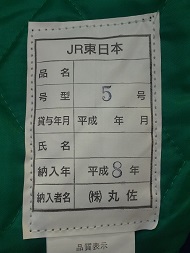 JR東日本
品名
号型 5 号
貸与年月 平成 年 月
氏名
納入年 平成 8 年
納入者名 ㈱丸佐
品質表示